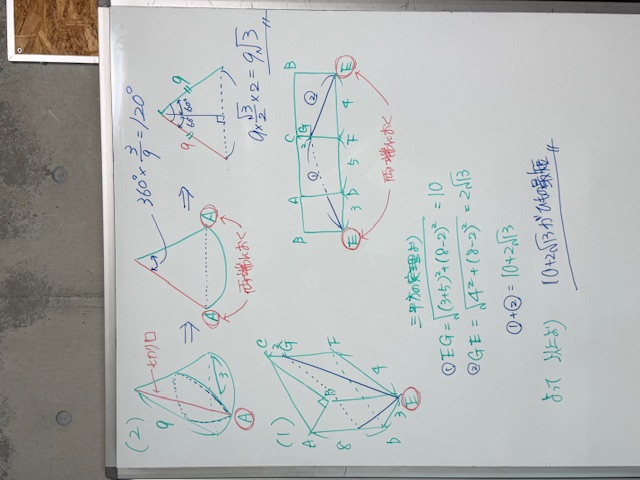 (2)
9
切り口
3
A
⇒
A
A
両端におく
360°× 3/9 = 120°
⇒
9
9
60° 60°
9×√3/2×2=9√3
(1)
A
B
C
2
G
8
F
D
3
E
4
B
A
C
B
2
G
①
②
E
3
D
5
F
4
E
両端におく
三平方の定理より
① EG=√(3+5)²+(8-2)² =10
② GE=√4²+(8-2)² =2√13
①+②=10+2√13
よって
10+2√13がひもの最短